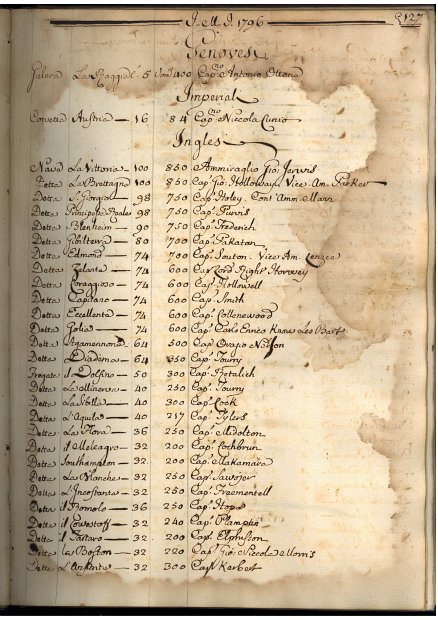 1796
127
Genovesi
Galera La Raggia 5 400 Cap. Antonio
Imperial
Corvetta Austria — 16 84 Cap. Niccola Cunio
Ingles
Nave La Vittoria 100 850 Ammiraglio Gio: Jervis
Detta La Brettagna 100 850 Cap. Gio: Holloway, Vice Am. Parker
Detta S. Giorgio 98 750 Cap. Foley. Cont' Amm. Mann
Detta Principessa Reale 98 750 Cap. Purvis
Detta Blenheim — 90 750 Cap. Frederich
Detta Gibilterra 80 700 Cap. Pakatan
Detta Edmond — 74 700 Cap. Sauton. Vice Am.
Detta Zelante — 74 600 Lord Hervey
Detta Coraggioso — 74 600 Cap. Hollowell
Detta Capitano — 74 600 Cap. Smith
Detta Eccellente — 74 600 Cap. Collenewood
Detta Golia — 74 600 Cap.
Detta Agamennone 64 500 Cap. Orazio Nelson
Detta Diadema — 64 350 Cap. Tourry
Fregata il Dolfino — 50 300 Cap. Retalich
Detta La Minerva — 40 250 Cap. Tourry
Detta La Sibilla — 40 300 Cap. Cook
Detta L'Aquila — 40 217 Cap. Tylers
Detta La Flora — 36 250 Cap. Midolton
Detta il Meleagro — 32 200 Cap. Cochbrun
Detta Southampton — 32 250 Cap. Makamara
Detta La Blanche — 32 250 Cap. Sawojer
Detta L'Incostante — 32 250 Cap. Freementell
Detta il Romolo — 36 250 Cap. Hope
Detta il Lowestoff — 32 240 Cap. Plampin
Detta il Tartaro — 32 200 Cap. Elphuston
Detta la Boston — 32 220 Cap. Gio: Niccola Morris
Detta L'Anfitrite — 32 300 Cap. Herbert